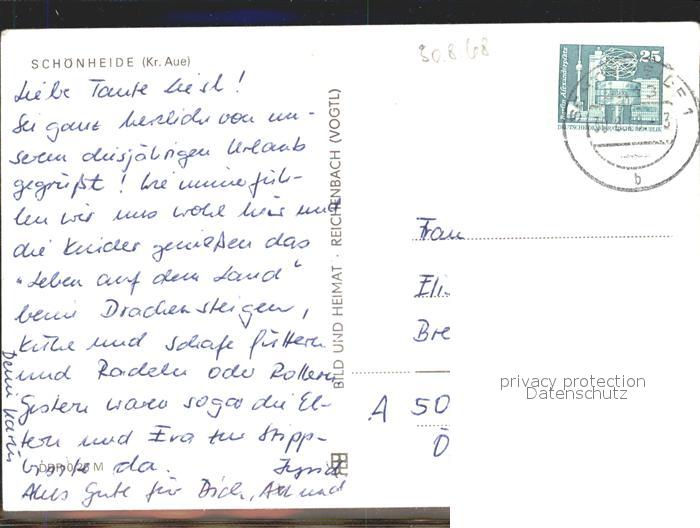 SCHÖNHEIDE (Kr. Aue)
Liebe Tante Liesl!
Sei ganz herzlich von un-
serem diesjährigen Urlaub
gegrüßt! Wie immer füh-
len wir uns wohl hier und
die Kinder genießen das
"Leben auf dem Land"
beim Drachensteigen,
Kühe und Schafe füttern
und Radeln oder Rollern
Gestern waren sogar die El-
tern und Eva zur Stipp-
visite da. Ingrid
Alles Gute für Dich, Axl und
Deine Karin
DDR 0,20 M
BILD UND HEIMAT · REICHENBACH (VOGTL)
30.8.68
25
Berlin, Alexanderplatz
DEUTSCHE DEMOKRATISCHE REPUBLIK
b
Frau
Eli
Bre
A 50
Ö
privacy protection
Datenschutz